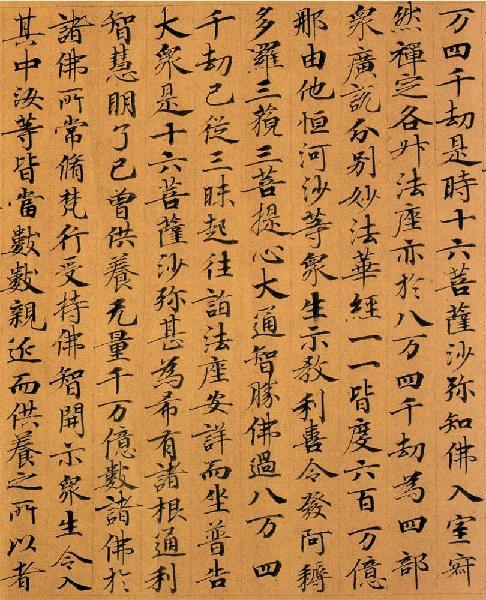 万四千劫是時十六菩薩沙弥知佛入室宑
然禪定各升法座亦於八万四千劫為四部
衆廣説分別妙法華經一一皆度六百万億
那由他恒河沙等衆生示教利憙令發阿耨
多羅三藐三菩提心大通智勝佛過八万四
千劫已從三昧起往詣法座安詳而坐普告
大衆是十六菩薩沙弥甚為希有諸根通利
智慧明了已曾供養无量千万億數諸佛於
諸佛所常脩梵行受持佛智開示衆生令入
其中汝等皆當數數親近而供養之所以者